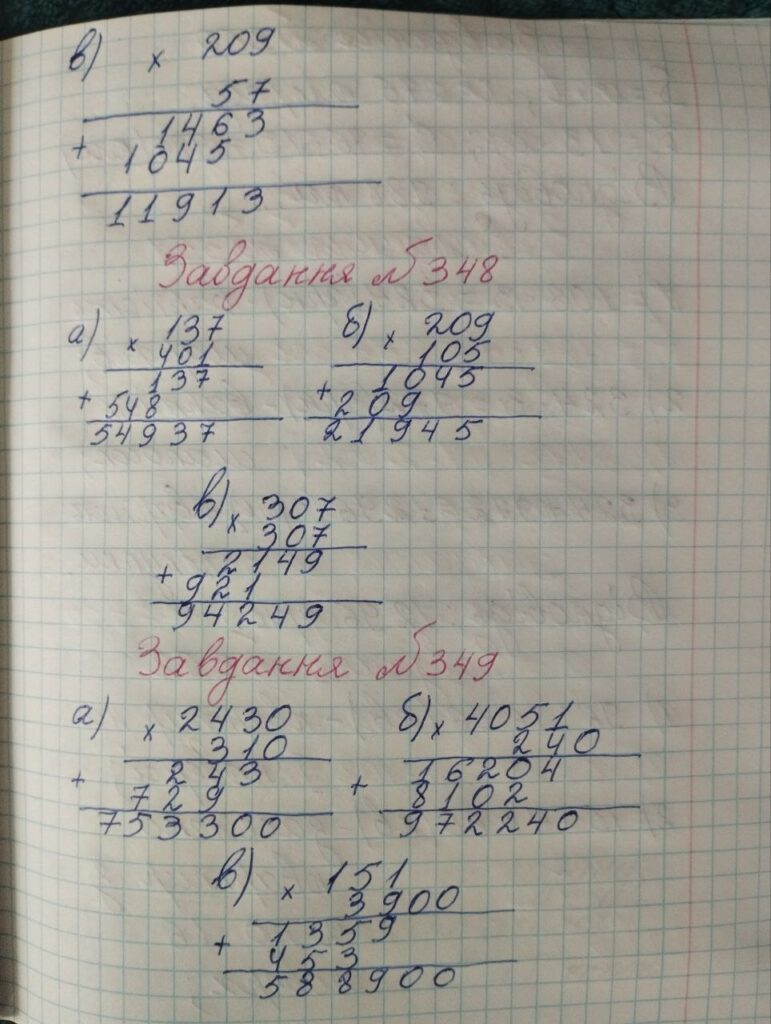 в) × 209
57
1463
+ 1045
11913
Завдання №348
а) × 137
401
137
+ 548
54937
б) × 209
105
1045
+ 209
21945
в) × 307
307
2149
+ 921
94249
Завдання №349
а) × 2430
310
243
+ 729
753300
б) × 4051
240
16204
+ 8102
972240
в) × 151
3900
1359
+ 453
588900